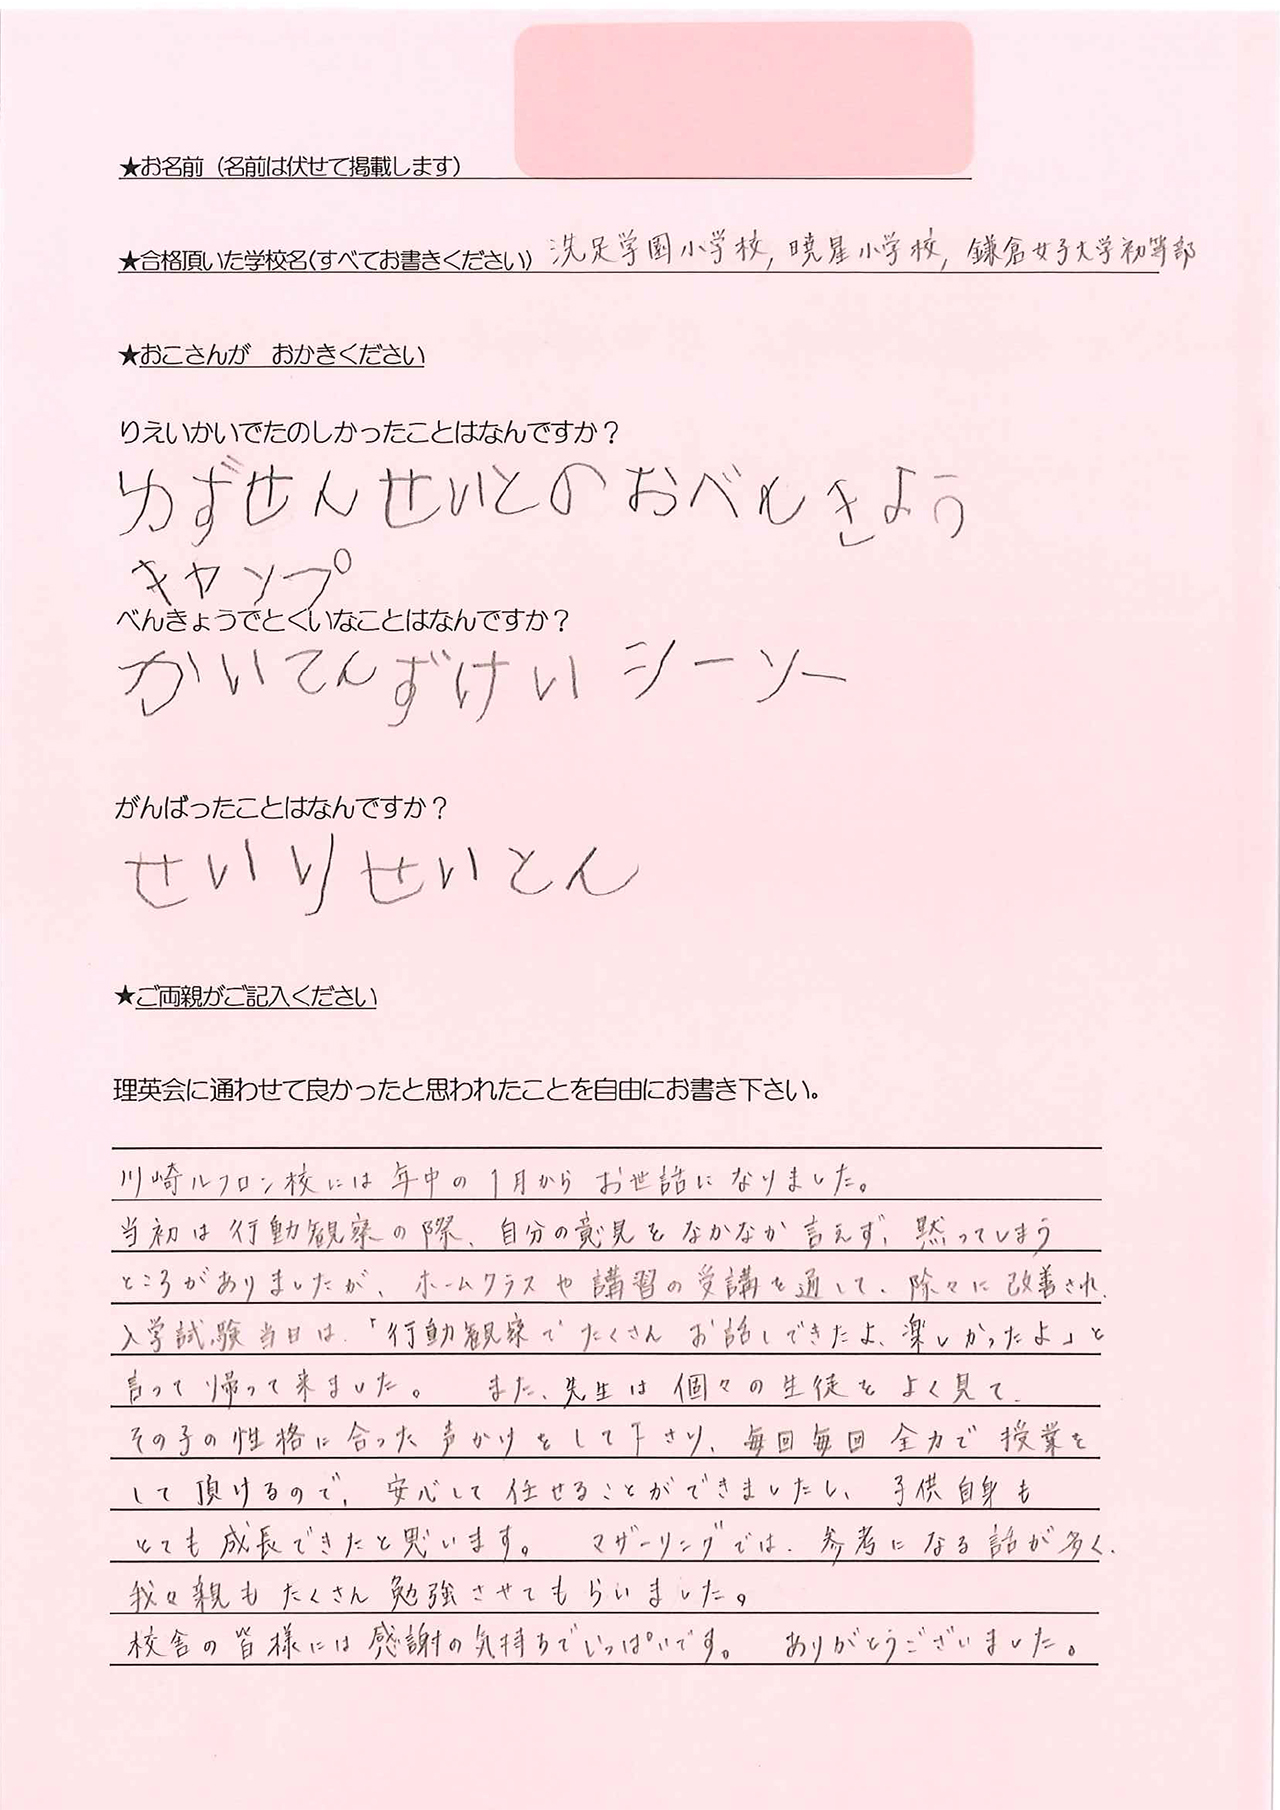 ★お名前（名前は伏せて掲載します）
★合格頂いた学校名(すべてお書きください) 洗足学園小学校, 暁星小学校, 鎌倉女子大学初等部
★おこさんが おかきください
りえいかいでたのしかったことはなんですか？
ゆずせんせいとのおべんきょう
キャンプ
べんきょうでとくいなことはなんですか？
かいてんずけい シーソー
がんばったことはなんですか？
せいりせいとん
★ご両親がご記入ください
理英会に通わせて良かったと思われたことを自由にお書き下さい。
川崎ルフロン校には年中の1月からお世話になりました。
当初は行動観察の際、自分の意見をなかなか言えず、黙ってしまう
ところがありましたが、ホームクラスや講習の受講を通して、除々に改善され、
入学試験当日は、「行動観察でたくさんお話しできたよ、楽しかったよ」と
言って帰って来ました。 また、先生は個々の生徒をよく見て、
その子の性格に合った声かけをして下さり、毎回毎回全力で授業を
して頂けるので、安心して任せることができましたし、子供自身も
とても成長できたと思います。 マザーリングでは、参考になる話が多く、
我々親もたくさん勉強させてもらいました。
校舎の皆様には感謝の気持ちでいっぱいです。 ありがとうございました。